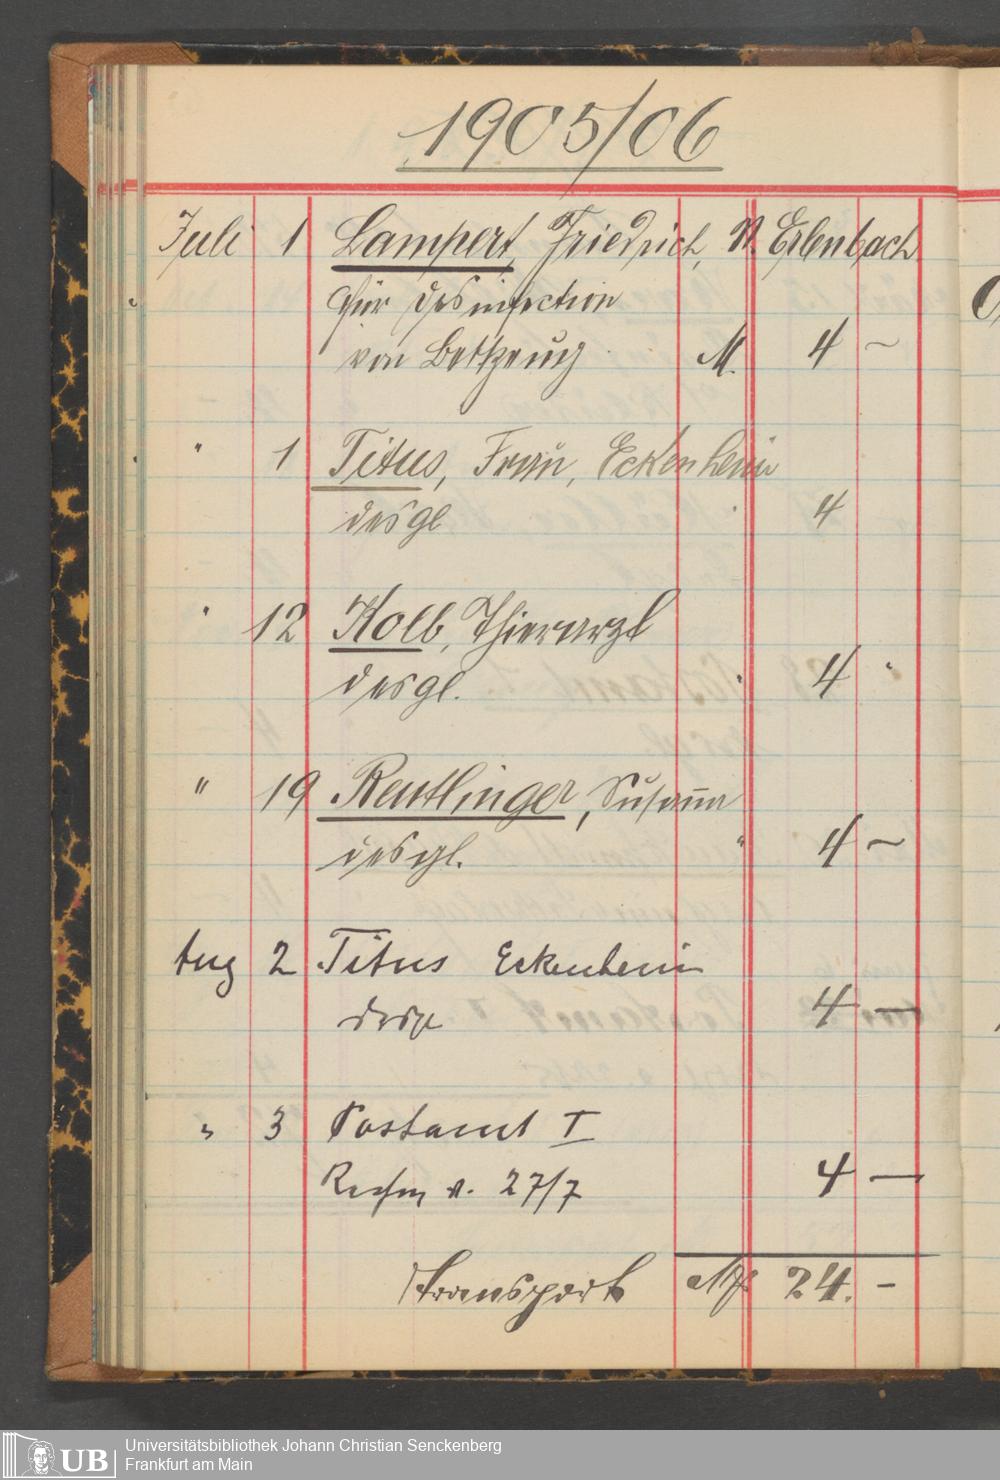 1905/06
Juli 1 Lampert, Friedrich, N. Erlenbach
für Desinfection
von Bettzeug M. 4 –
" 1 Titus, Frau, Eckenheim
desgl " 4
" 12 Kolb, Thierarzt
desgl. " 4 "
" 19 Reutlinger, Susanna
desgl. " 4 –
Aug 2 Titus Eckenheim
desgl 4 –
" 3 Postamt I
Rechng v. 27/7 4 –
Transport M 24. –
UB
Universitätsbibliothek Johann Christian Senckenberg
Frankfurt am Main